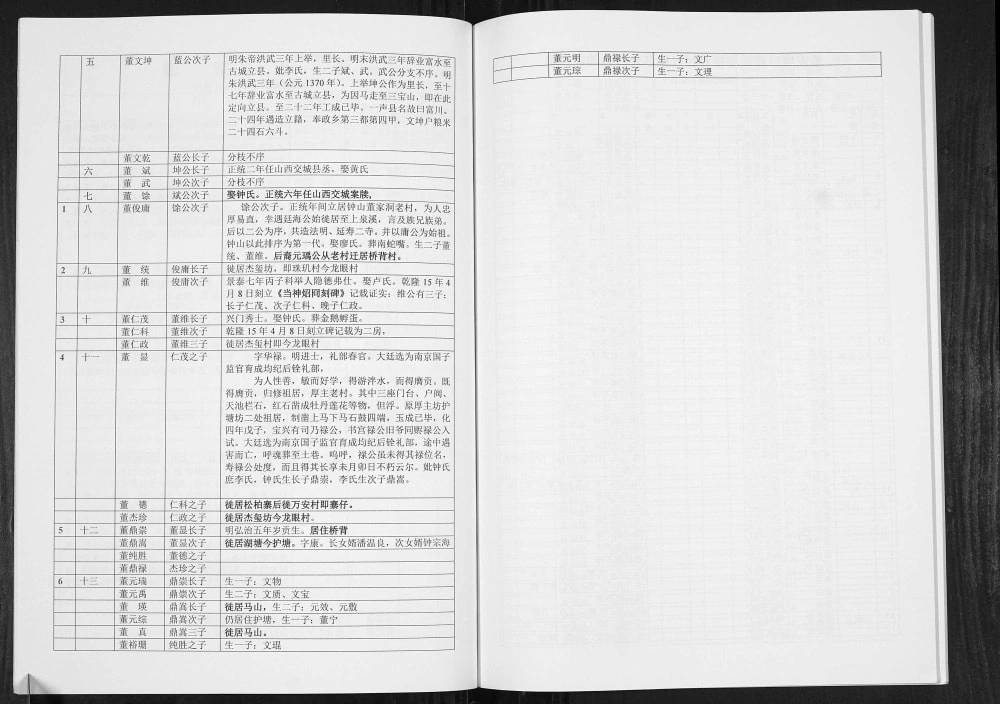 五 董文坤 蓝公次子 明朱帝洪武三年上举，里长、明末洪武三年辞业富水至
古城立县，妣李氏，生二子斌、武。武公分支不序。明
朱洪武三年（公元 1370 年）。上举坤公作为里长，至十
七年辞业富水至古城立县，为因马走至三宝山，即在此
定向立县。至二十二年工成已毕。一声县名故曰富川、
二十四年遇造立籍，奉政乡第三都第四甲，文坤户粮米
二十四石六斗。
董文乾 蓝公长子 分枝不序
六 董 斌 坤公长子 正统二年任山西交城县丞。娶黄氏
董 武 坤公次子 分枝不序
七 董 馀 斌公次子 娶钟氏。正统六年任山西交城案牍，
1 八 董俊庸 馀公次子 馀公次子。正统年间立居钟山董家洞老村，为人忠
厚易直，幸遇廷海公始徙居至上泉溪，言及族兄族弟。
后以二公为序，共造法明、延寿二寺。并以庸公为始祖。
钟山以此排序为第一代。娶廖氏。葬南蛇嘴。生二子董
统、董维。后裔元瑀公从老村迁居桥背村。
2 九 董 统 俊庸长子 徙居杰玺坊，即珠玑村今龙眼村
董 维 俊庸次子 景泰七年丙子科举人隐德弗仕。娶卢氏。乾隆 15 年 4
月 8 日刻立《当神炤同刻碑》记载证实：维公有三子：
长子仁茂、次子仁科、晚子仁政。
3 十 董仁茂 董维长子 兴门秀士。娶钟氏。葬金鹅孵蛋。
董仁科 董维次子 乾隆 15 年 4 月 8 日刻立碑记载为二房，
董仁政 董维三子 徙居杰玺村即今龙眼村
4 十一 董 显 仁茂之子 字华禄。明进士，礼部春官。大廷选为南京国子
监官育成均纪后铨礼部，
为人性善，敏而好学，得游泮水，而得膺贡。既
得膺贡，归修祖居，厚主老村。其中三座门台、户阀、
天池栏石，红石凿成牡丹莲花等物，但浮。原厚主坊护
塘坊二处祖居，制凿上马下马石鼓四端，玉成已毕，化
四年戊子，宝兴有司乃禄公，书宫禄公旧爷同赆禄公入
试。大廷选为南京国子监官育成均纪后铨礼部。途中遇
害而亡，呼魂葬至土巷。呜呼，禄公虽未得其禄位名，
寿禄公处度，而且得其长享未月卯日不朽云尔。妣钟氏
庶李氏，钟氏生长子鼎崇，李氏生次子鼎嵩。
董 德 仁科之子 徙居松柏寨后徙万安村即寨仔。
董杰珍 仁政之子 徙居杰玺坊今龙眼村。
5 十二 董鼎崇 董显长子 明弘治五年岁贡生。居住桥背
董鼎嵩 董显次子 徙居湖塘今护塘。字康。长女婿潘温良，次女婿钟宗海
董纯胜 董德之子
董鼎禄 杰珍之子
6 十三 董元瑞 鼎崇长子 生一子：文物
董元禹 鼎崇次子 生二子：文质、文宝
董 瑛 鼎嵩长子 徙居马山，生二子：元效、元敷
董元综 鼎嵩次子 仍居住护塘，生一子：董宁
董 真 鼎嵩三子 徙居马山。
董裕珊 纯胜之子 生一子：文琨
董元明 鼎禄长子 生一子：文广
董元琮 鼎禄次子 生一子：文理